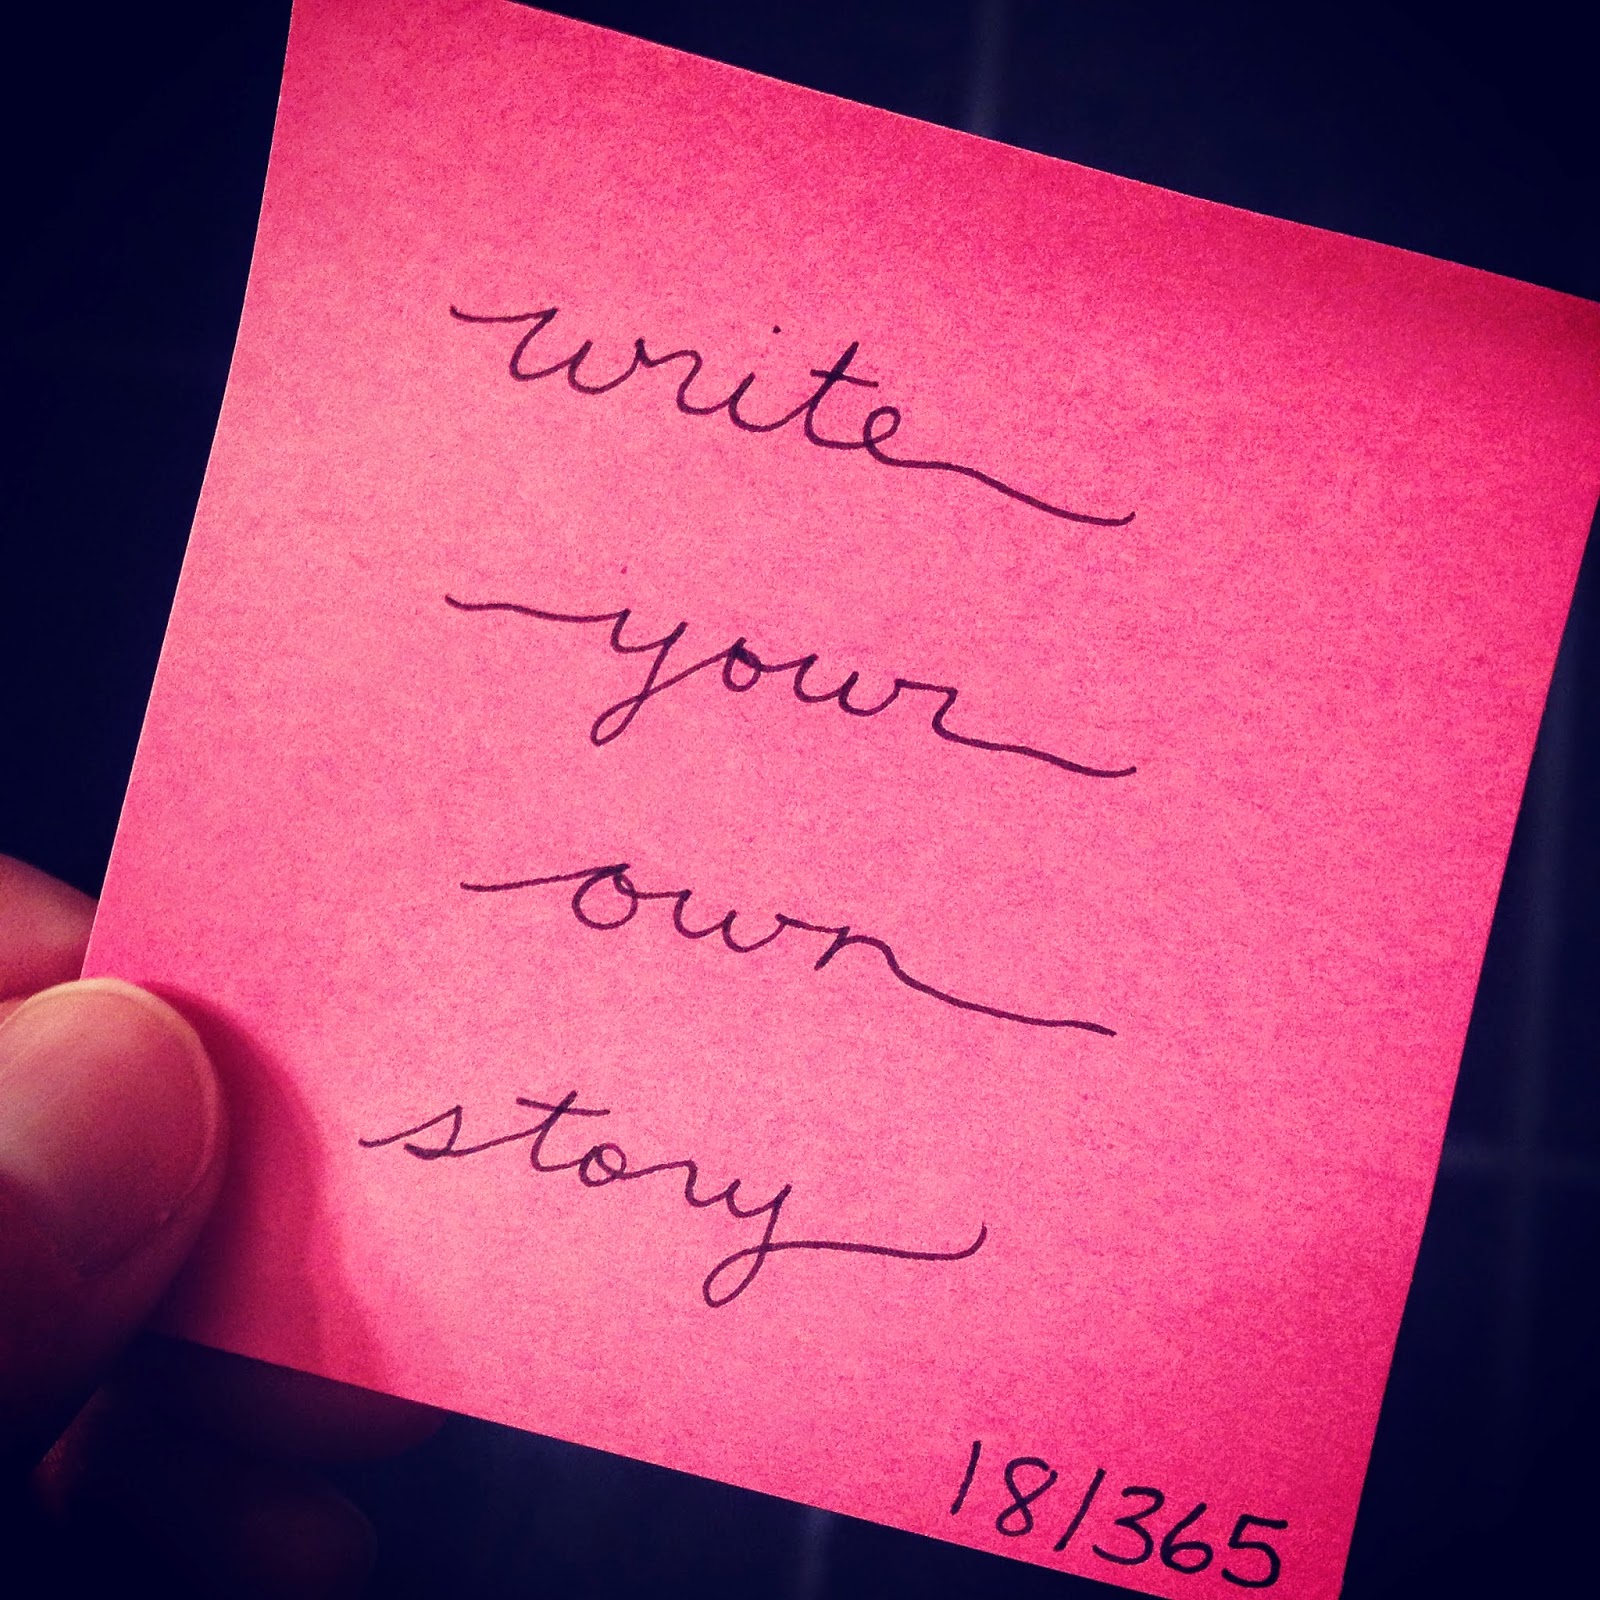 write
your
own
story
18/365